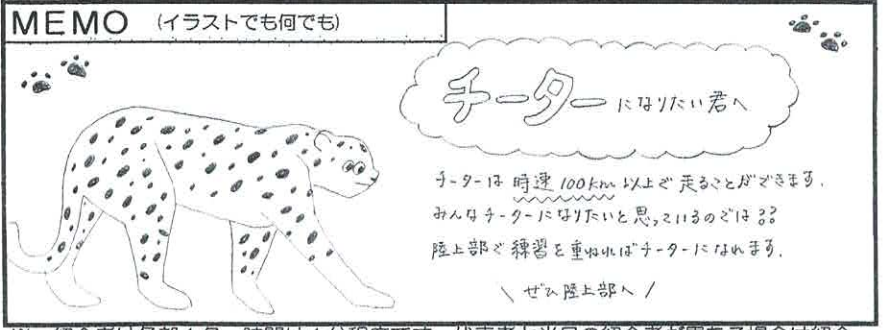 MEMO (イラストでも何でも)
チーターになりたい君へ
チーターは時速100km以上で走ることができます.
みんなチーターになりたいと思っているのでは??
陸上部で練習を重ねればチーターになれます.
\ ぜひ陸上部へ /